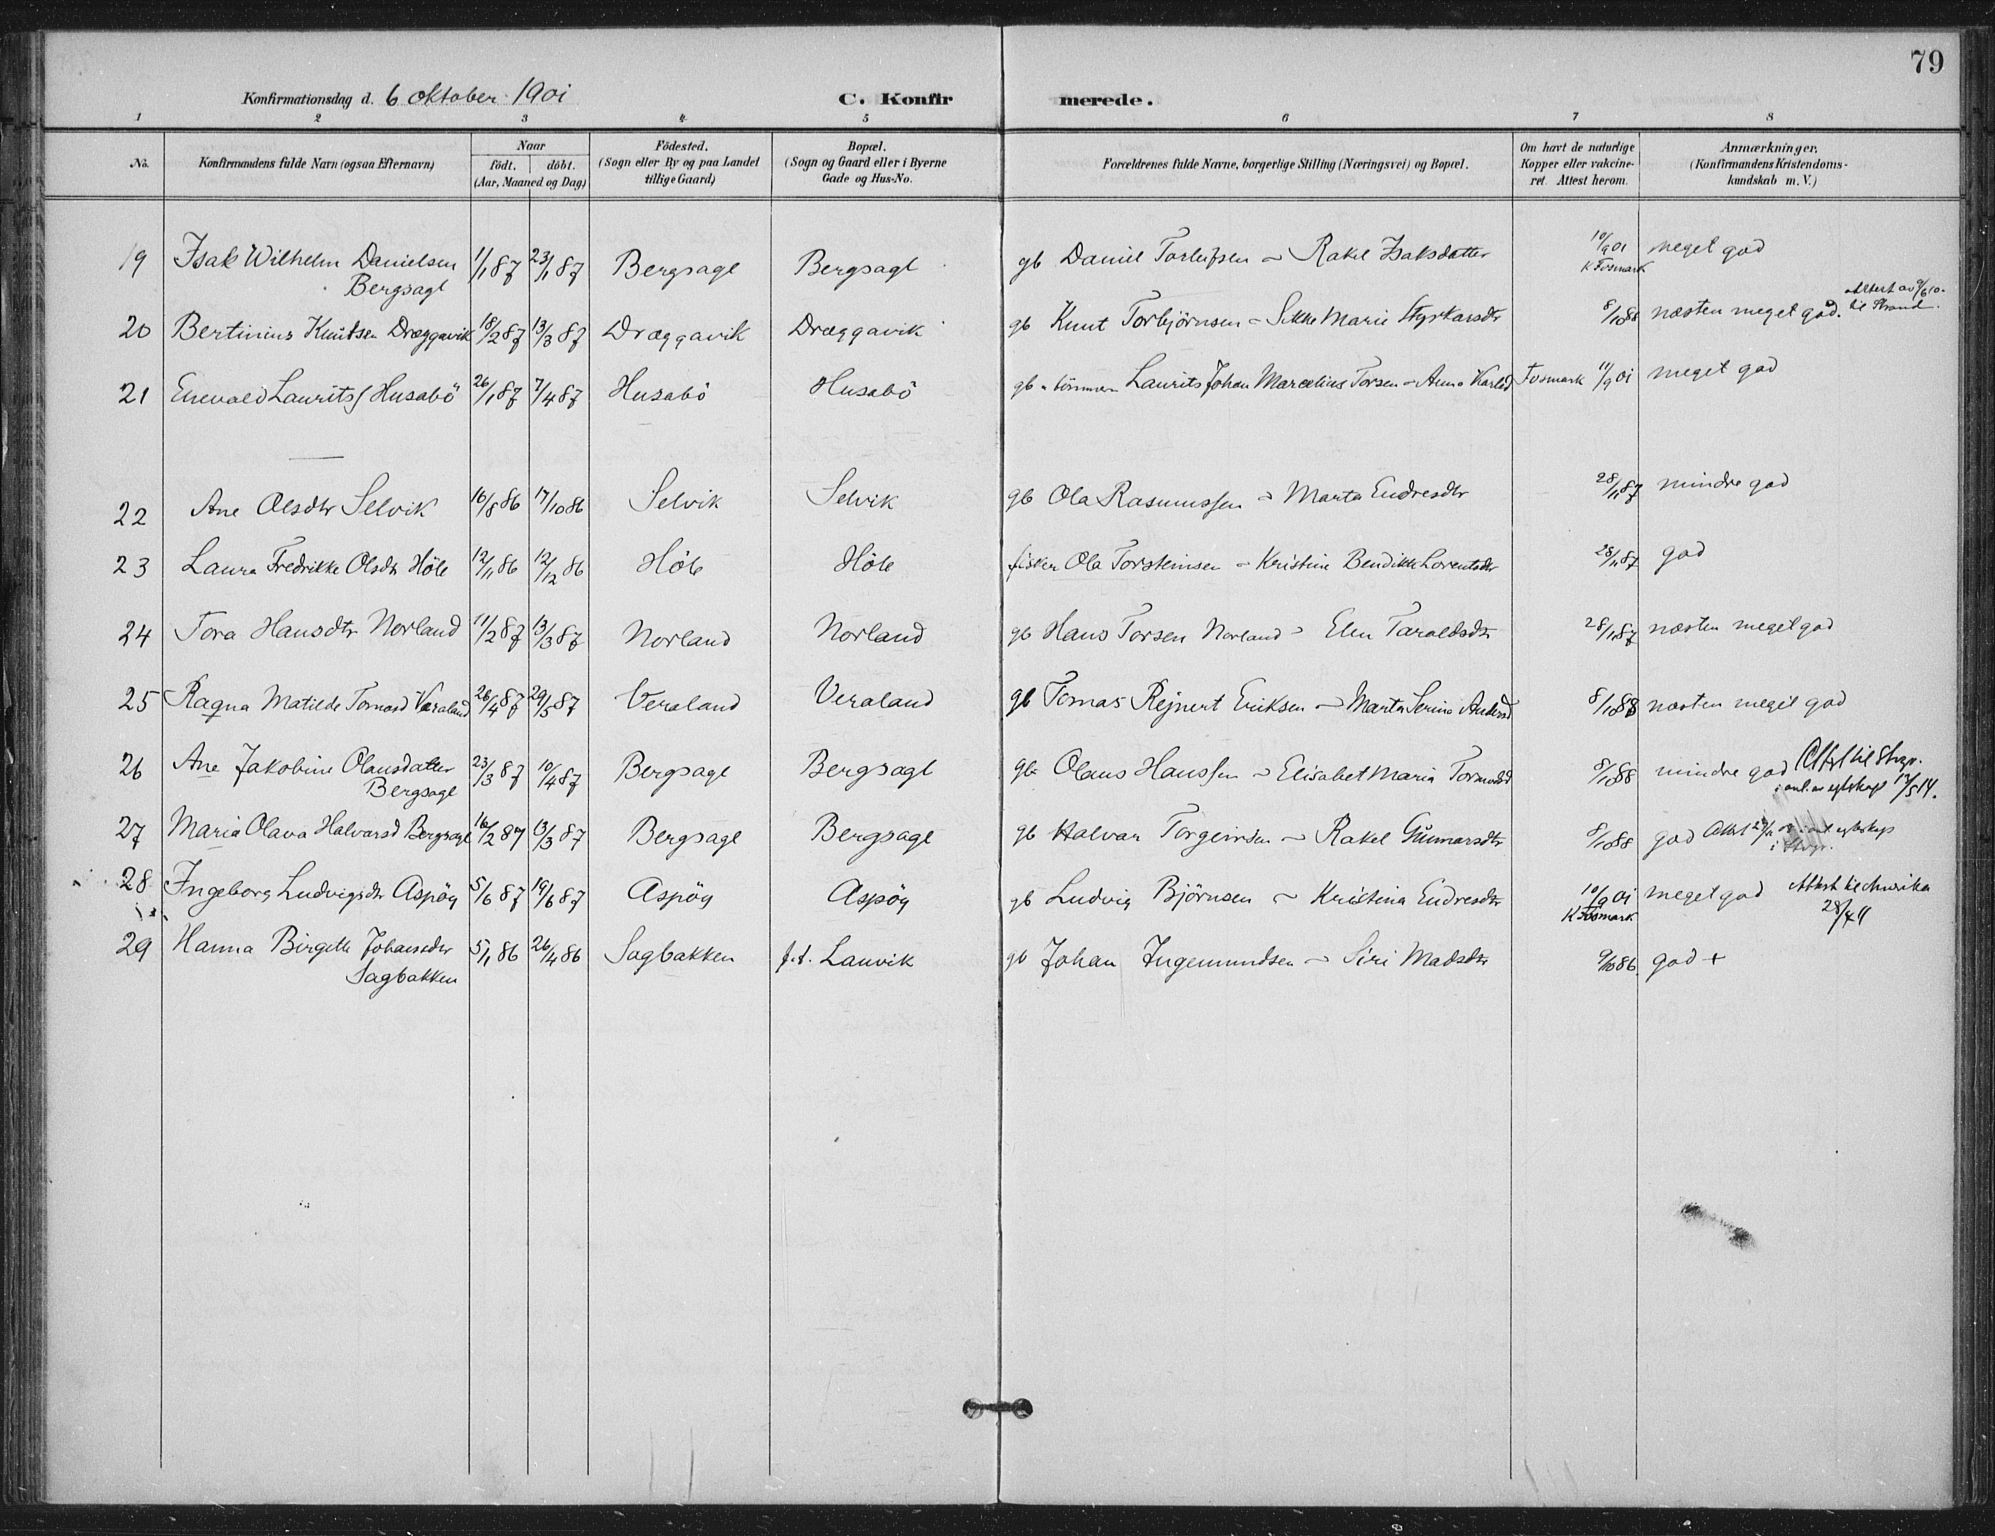 79
Konfirmationsdag d. 6 oktober 1901 C. Konfirmerede.
1 2 3 4 5 6 7 8
No. Konfirmandens fulde Navn (ogsaa Efternavn) Naar født. døbt. (Aar, Maaned og Dag) Födested. (Sogn eller By og paa Landet tillige Gaard) Bopæl. (Sogn og Gaard eller i Byerne Gade og Hus-No. Forældrenes fulde Navne, borgerlige Stilling (Næringsvei) og Bopæl. Om havt de naturlige Kopper eller vakcineret. Attest herom. Anmærkninger. (Konfirmandens Kristendomskundskab m. V.)
19 Isak Wilhelm Danielsen Bergsagel 1/1 87 23/1 87 Bergsagel Bergsagel gb Daniel Torleifsen - Rakel Isaksdatter 10/9 01 K Fosmark meget god
20 Bertinius Knutsen Dræggavik 18/2 87 13/3 87 Dræggavik Dræggavik gb Knut Torbjörnsen - Sikke Marie Styrkarsdtr 8/10 88 næsten meget god. Attest til Strand.
21 Enevald Laurits Husabö 26/1 87 7/4 87 Husabö Husabö gb - tömmerm Laurits Johan Marcelius Torsen - Anna Karlsd Fosmark 11/9 01 meget god
22 Ane Olsdtr Selvik 16/8 86 17/10 86 Selvik Selvik gb Ola Rasmussen - Marta Endresdtr 28/11 87 mindre god
23 Laura Fredrikke Olsdtr Höle 12/11 86 12/12 86 Höle Höle fisker Ola Torsteinsen - Kristine Bendikke Lorentsdtr 28/11 87 god
24 Tora Hansdtr Norland 11/2 87 13/3 87 Norland Norland gb Hans Torsen Norland - Elen Taraldsdtr 28/11 87 næsten meget god
25 Ragna Matilde Tomasd Veraland 26/4 87 29/5 87 Veraland Veraland gb Tomas Rejnert Eriksen - Marta Serine Andersd 8/10 88 næsten meget god
26 Ane Jakobine Olausdatter Bergsagel 23/3 87 10/4 87 Bergsagel Bergsagel gb Olaus Hanssen - Elisabet Maria Tormodsd 8/10 88 mindre god Attest til Stvgr. i anl. av egteskap 12/5 14.
27 Maria Olava Halvorsd Bergsagel 16/2 87 13/3 87 Bergsagel Bergsagel gb Halvar Torgeirsen - Rakel Gunnarsdtr 8/10 88 god Attest egteskap i Stvgr.
28 Ingeborg Ludvigsdtr Aspöy 5/6 87 19/6 87 Aspöy Aspöy gb Ludvig Björnsen - Kristina Endresdtr 10/9 01 K Fosmark meget god Attest til Amerika 28/4 11
29 Hanna Birgitte Johansdtr Sagbakken 5/1 86 26/4 86 Sagbakken f.t. Lauvik gb Johan Ingemundsen - Siri Madsdtr 9/10 86. god +